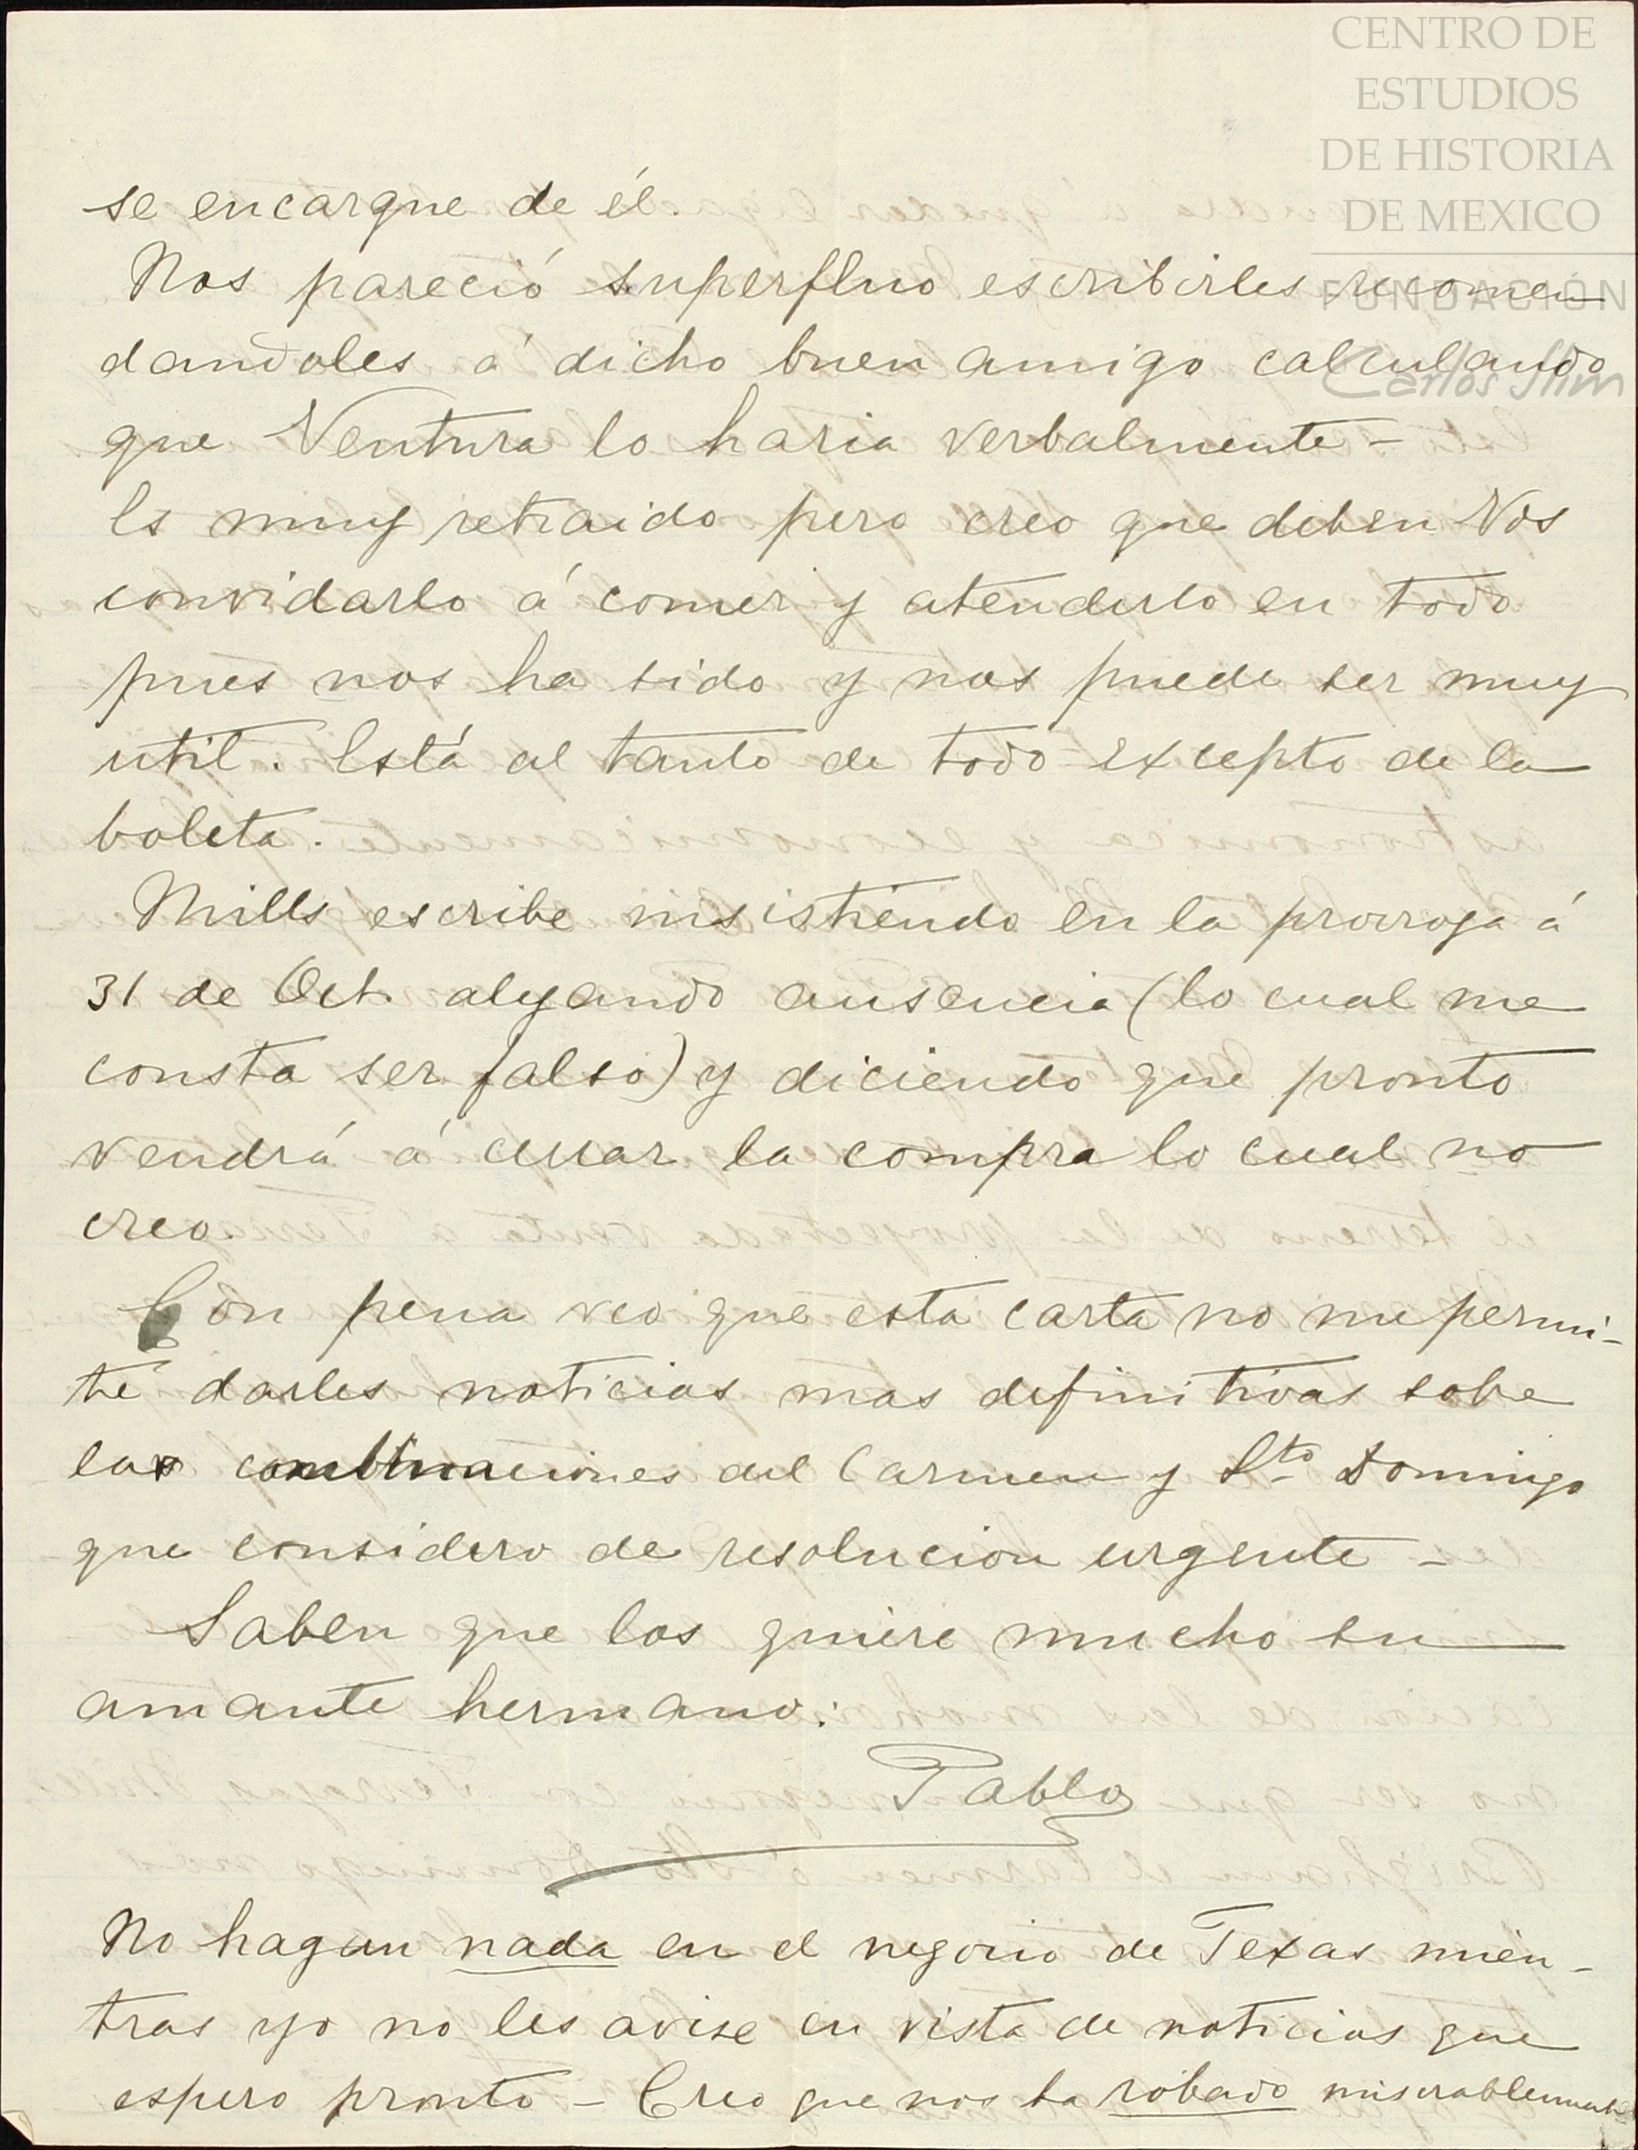 CENTRO DE
ESTUDIOS
DE HISTORIA
DE MEXICO
FUNDACIÓN
Carlos Slim
se encargue de él.
Nos pareció superfluo escribirles recomen
dandoles á dicho buen amigo calculando
que Ventura lo haria verbalmente -
Es muy retraido pero creo que deben Vds
convidarlo á comer y atenderlo en todo
pues nos ha sido y nos puede ser muy
util. Está al tanto de todo excepto de la
boleta.
Mills escribe insistiendo en la prorroga á
31 de Oct. alegando ausencia (lo cual me
consta ser falso) y diciendo que pronto
vendrá á cerrar la compra lo cual no
creo.
Con pena veo que esta carta no me permi-
te darles noticias mas definitivas sobre
las combinaciones del Carmen y Sto Domingo
que considero de resolucion urgente -
Saben que los quiere mucho su
amante hermano:
Pablo
No hagan nada en el negocio de Texas mien-
tras yo no les avise en vista de noticias que
espero pronto - Creo que nos ha robado miserablemente